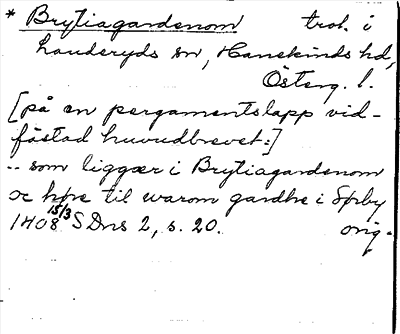 * Brytiagardenom trol. i
Landeryds sn, Hanekinds hd,
Österg. l.
[på en pergamentslapp vid-
fästad huvudbrevet:]
.. som liggær i Brytiagardenom
oc høre til warom gardhe i Sørby
1408 15/3 SDns 2, s. 20. orig.